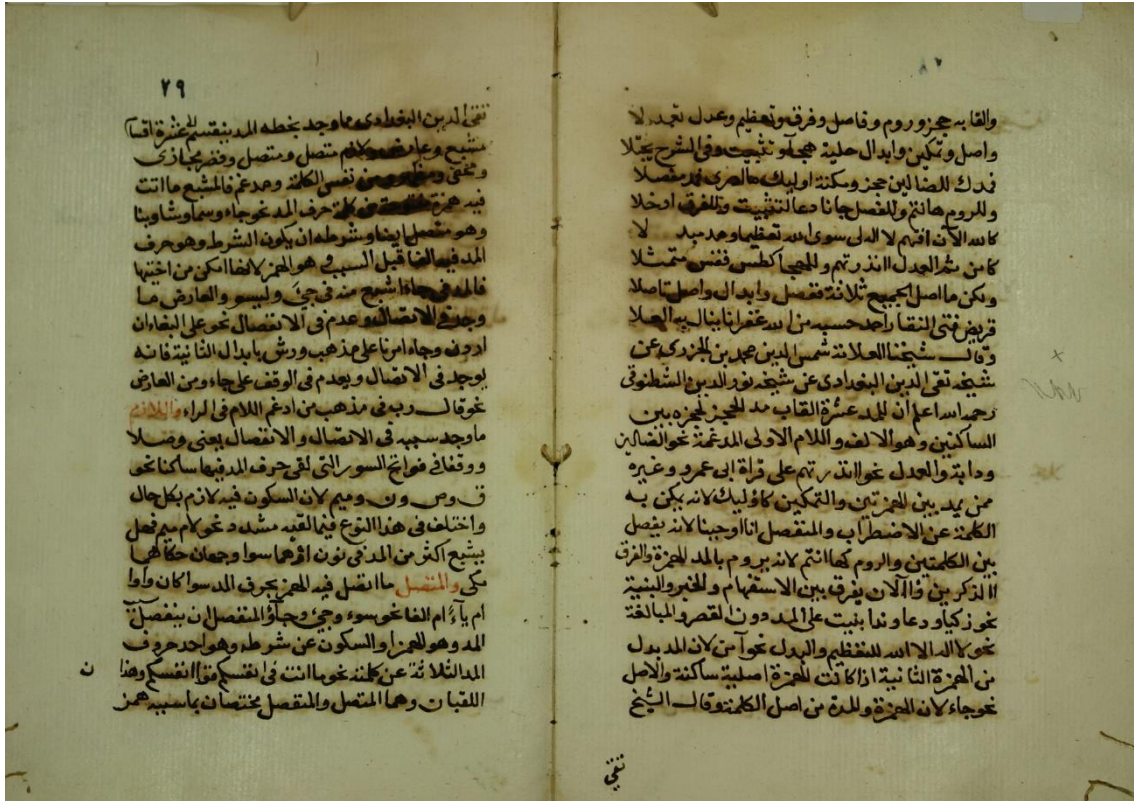 والقابه حجز وروم وفاصل وفرق وتعظيم وعدل تعمد لا
واصل وتمكين وابدال حلية هجآء وتثبيت وفي الشرح
فمدك للضالين حجز ومكنة اوليك
وللروم هانتم وللفصل جانا دعا لتثبيت وللفرق
كالله الآن افهم لا اله لي سوى الله تعظيما لا
كامن ثم العدل اانذرتهم وللهجا كطس فقس متمثلا
ويكن ما اصل الجميع ثلاثة ففصل وابدال واصل تاصلا
قريض فتى النقار احد حسبه من الله غفرانا ينال به العلا
وقال شيخنا العلامة شمس الدين محمد بن الجزري عن
شيخه تقي الدين البغدادي عن شيخه نور الدين الشطنوفي
رحمه الله اعلم ان للمد عشرة القاب مد للحجز لحجزه بين
الساكنين وهو الالف واللام الاولى المدغمة نحو الضالين
ودابة والعدل نحو اانذرتهم على قراة ابي عمرو وغيره
ممن يمد بين الهمزتين والتمكين كاوليك لانه يمكن به
الكلمة عن الاضطراب والمنفصل انا اوحينا لانه يفصل
بين الكلمتين والروم كهاانتم لانه يروم بالمد للهمزة والفرق
االذكرين وءاالآن يفرق بين الاستفهام والخبر والبنية
نحو زكريا ودعا وندا بنيت على المد دون القصر والمبالغة
نحو لا اله الا الله للتعظيم والبدل نحو آمن لان المد بدل
من الهمزة الثانية اذا كانت الهمزة اصلية ساكنة والاصل
نحو جاء لان الهمزة والمدة من اصل الكلمة وقال الشيخ
تقي
٧٩
تقي الدين البغدادي ومما وجد بخطه المد ينقسم الى عشرة اقسام
مشبع وعارض ولازم متصل ومتصل وقصر مجازي
ومخفي نفس الكلمة ومدغم فالمشبع ما اتت
فيه همزة كلمة حرف المد نحو جاء وسماء وشا وبنا
وهو متصل ايضا وشرطه ان يكون الشرط وهو حرف
المد فيه الفا قبل السبب وهو الهمز لانها امكن من اختيها
فالمد في جاء اشبع منه في جيء وليسو والعارض ما
وجد في الاتصال وعدم في الانفصال نحو على البغاء ان
اردن وجاء امرنا على مذهب ورش بابدال الثانية فانه
يوجد في الاتصال ويعدم في الوقف على جاء ومن العارض
نحو قال رب في مذهب من ادغم اللام في الراء واللازم
ما وجد سببه في الاتصال والانفصال يعني وصلا
ووقفا في فواتح السور التي لقي حرف المد فيها ساكنا نحو
ق وص ون وميم لان السكون فيه لازم بكل حال
واختلف في هذا النوع فيما لقيه مشدد نحو لام ميم فهل
يشبع اكثر من المد في نون او هما سوا وجهان حكاهما
مكي والمتصل ما اتصل فيه الهمز بحرف المد سوا كان واوا
ام ياءً ام الفا نحو سوء وجيء وجآؤ المنفصل ان ينفصل
المد وهو الهمز او السكون عن شرطه وهو احد حروف
المد الثلاثة عن كلمته نحو ما انت في انفسكم قوا انفسكم وهذا ن
اللقبان وهما المتصل والمنفصل مختصان بما سببه همز